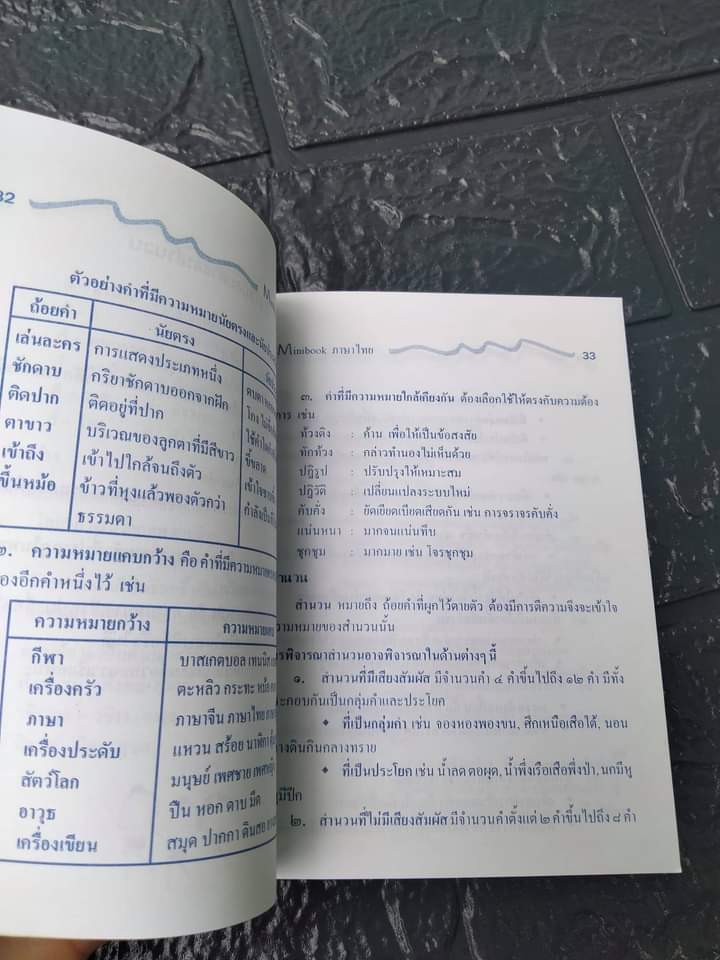 32
ตัวอย่างคำที่มีความหมายนัยตรงและนัย
ถ้อยคำ นัยตรง
เล่นละคร การแสดงประเภทหนึ่ง
ชักดาบ กริยาชักดาบออกจากฝัก
ติดปาก ติดอยู่ที่ปาก
ตาขาว บริเวณของลูกตาที่มีสีขาว
เข้าถึง เข้าไปใกล้จนถึงตัว
ขึ้นหม้อ ข้าวที่หุงแล้วพองตัวกว่า
ธรรมดา
๒. ความหมายแคบกว้าง คือ คำที่มีความหมาย
องอีกคำหนึ่งไว้ เช่น
ความหมายกว้าง ความหมาย
กีฬา บาสเกตบอล เทนนิส
เครื่องครัว ตะหลิว กระทะ หม้อ
ภาษา ภาษาจีน ภาษาไทย
เครื่องประดับ แหวน สร้อย นาฬิกา
สัตว์โลก มนุษย์ เพศชาย
อาวุธ ปืน หอก ดาบ มีด
เครื่องเขียน สมุด ปากกา ดินสอ
Minibook ภาษาไทย 33
๓. คำที่มีความหมายใกล้เคียงกัน ต้องเลือกใช้ให้ตรงกับความต้อง
การ เช่น
ท้วงติง : ค้าน เพื่อให้เป็นข้อสงสัย
ทักท้วง : กล่าวทำนองไม่เห็นด้วย
ปฏิรูป : ปรับปรุงให้เหมาะสม
ปฏิวัติ : เปลี่ยนแปลงระบบใหม่
คับคั่ง : ยัดเยียดเบียดเสียดกัน เช่น การจราจรคับคั่ง
แน่นหนา : มากจนแน่นทึบ
ชุกชุม : มากมาย เช่น โจรชุกชุม
สำนวน หมายถึง ถ้อยคำที่ผูกไว้ตายตัว ต้องมีการตีความจึงจะเข้าใจ
วามหมายของสำนวนนั้น
รพิจารณาสำนวนอาจพิจารณาในด้านต่างๆ นี้
๑. สำนวนที่มีเสียงสัมผัส มีจำนวนคำ ๔ คำขึ้นไปถึง ๑๒ คำ มีทั้ง
ะกอบกันเป็นกลุ่มคำและประโยค
◆ ที่เป็นกลุ่มคำ เช่น จองหองพองขน, ศึกเหนือเสือใต้, นอน
างดินกินกลางทราย
◆ ที่เป็นประโยค เช่น น้ำลด ตอผุด, น้ำพึ่งเรือเสือพึ่งป่า, นกมีหู
มีปีก
๒. สำนวนที่ไม่มีเสียงสัมผัส มีจำนวนคำตั้งแต่ ๒ คำขึ้นไปถึง ๘ คำ